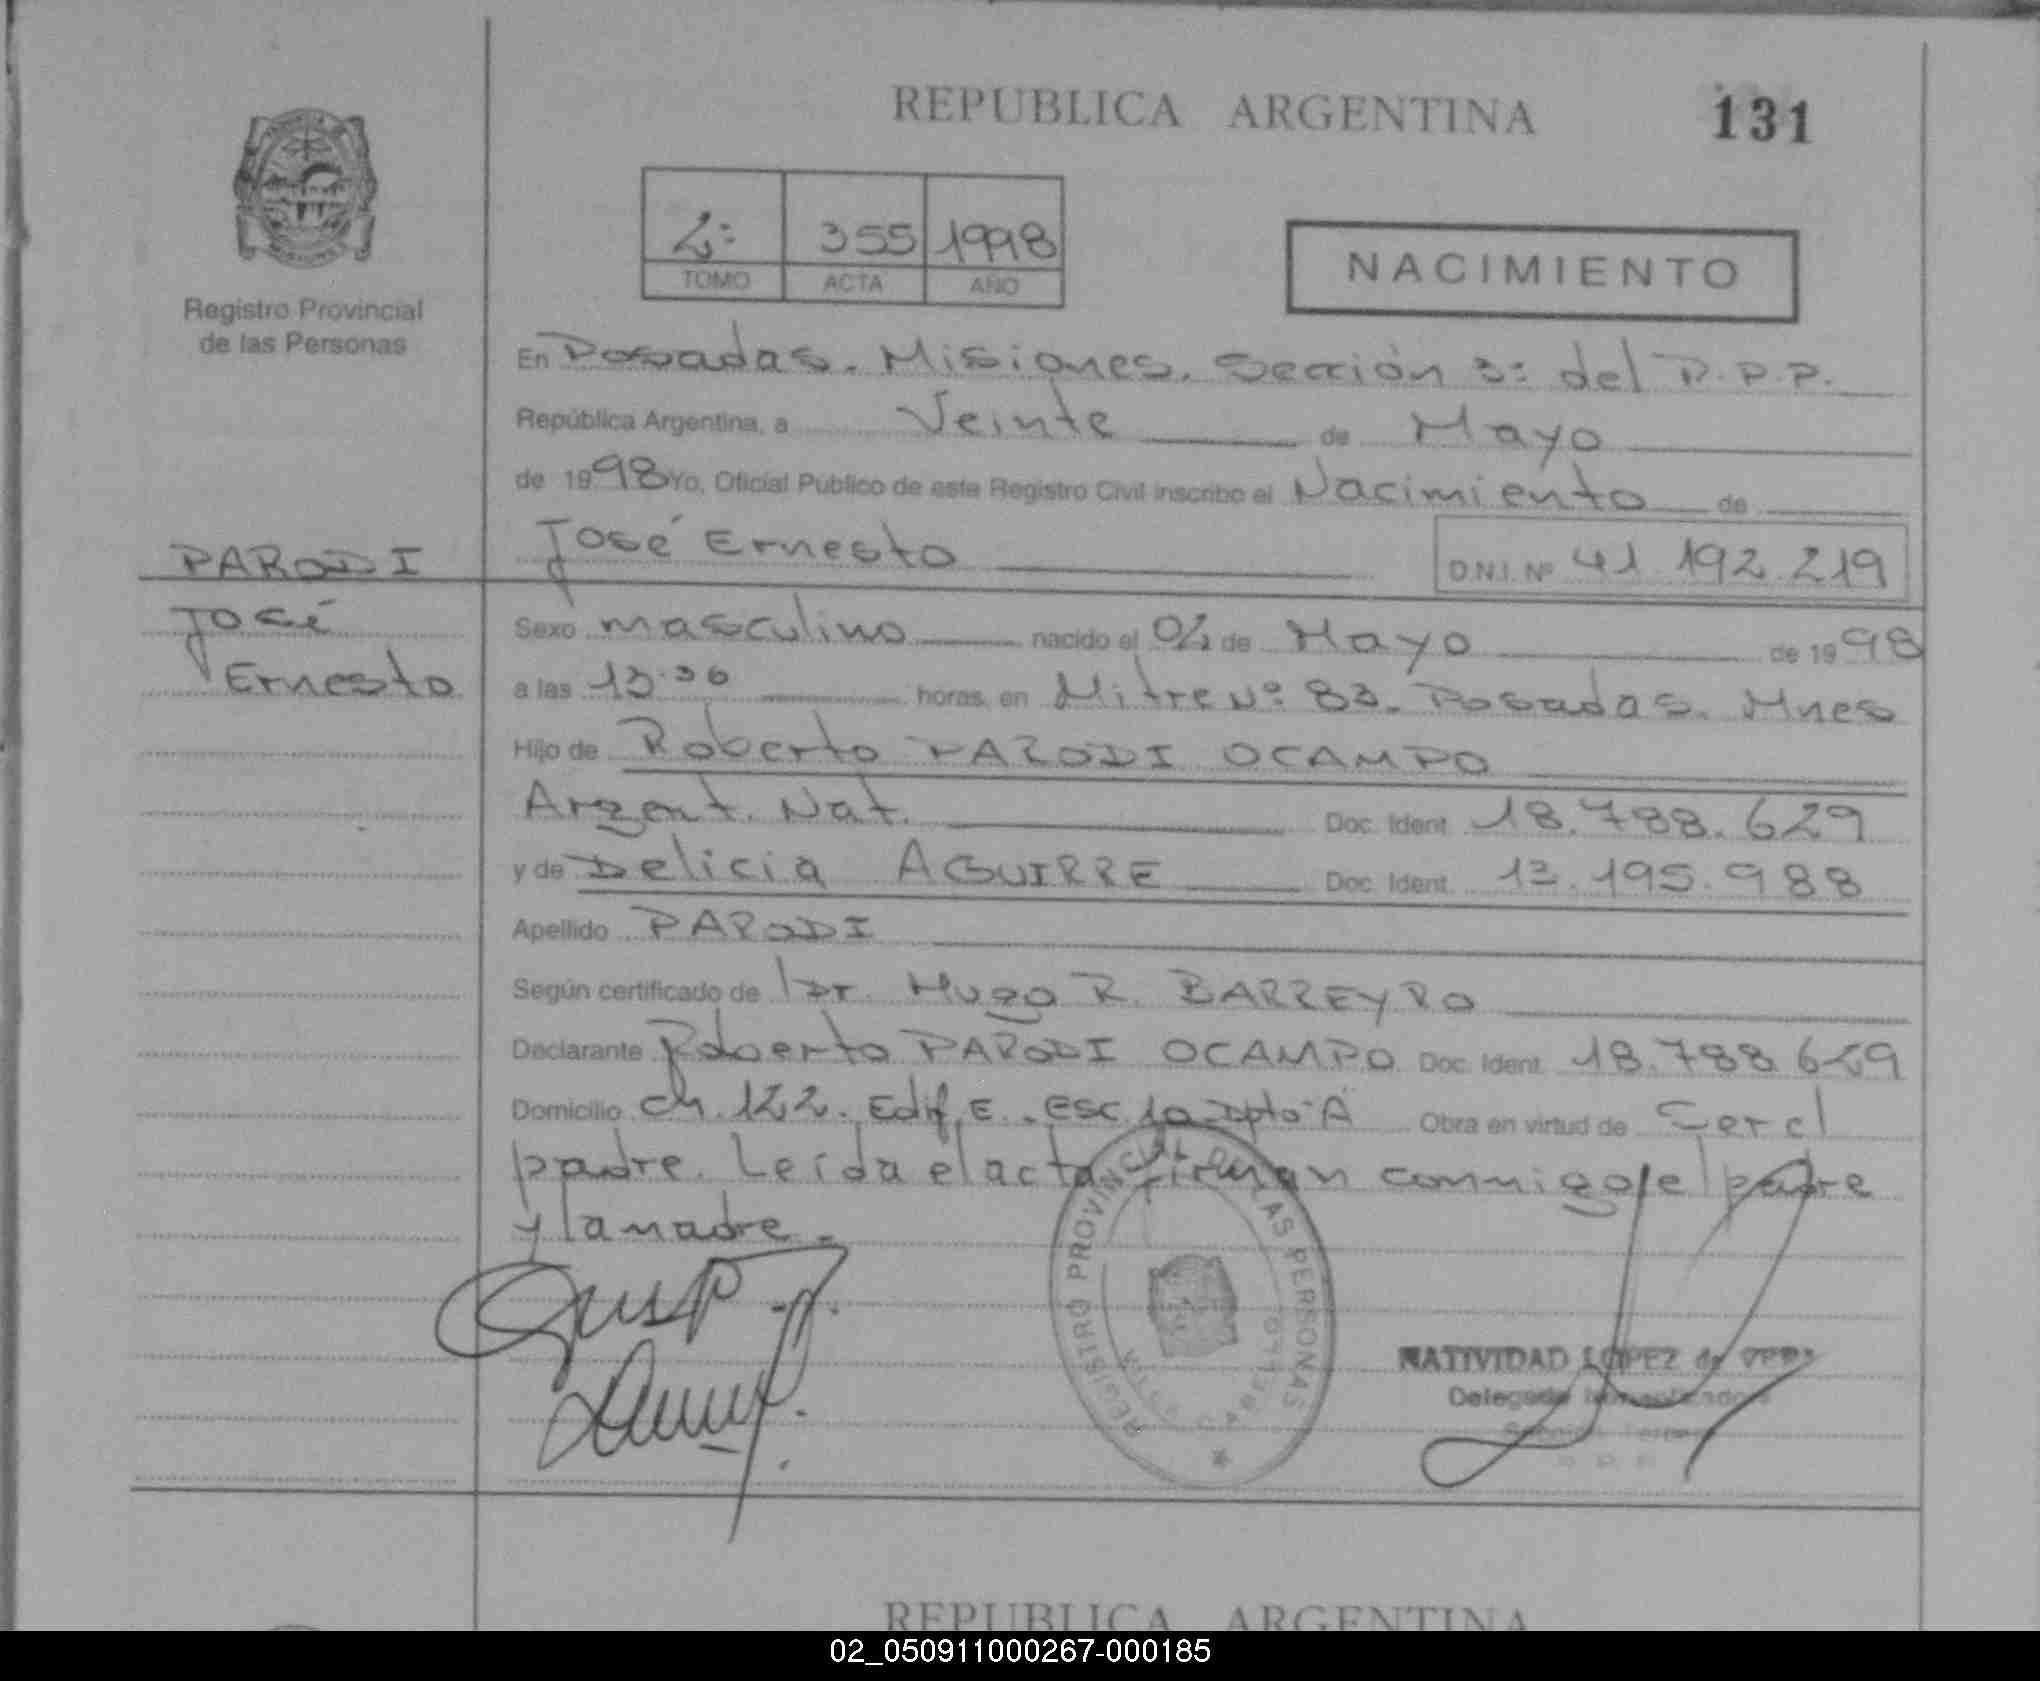 REPUBLICA ARGENTINA
131
2º 355 1998
TOMO ACTA AÑO
NACIMIENTO
Registro Provincial
de las Personas
En Posadas. Misiones. Sección 3º del R.P.P.
República Argentina, a Veinte de Mayo
de 1998 Yo, Oficial Público de este Registro Civil inscribo el Nacimiento de
PARODI José Ernesto D.N.I. Nº 41.192.219
José
Ernesto
Sexo masculino nacido el 02 de Mayo de 1998
a las horas, en Mitre Nº 83. Posadas. Mnes
Hijo de Roberto PARODI OCAMPO
Argent. Nat. Doc. Ident. 18.788.629
y de Delicia AGUIRRE Doc. Ident. 13.195.988
Apellido PARODI
Según certificado de Dr. Hugo R. BARREYRO
Declarante Roberto PARODI OCAMPO Doc. Ident. 18.788.629
Domicilio Ch. 122. Edif. E. esc. Dpto A Obra en virtud de Ser el
padre. Leída el acta firman conmigo el padre
y la madre.
REGISTRO PROVINCIAL DE LAS PERSONAS
NATIVIDAD LOPEZ de
REPUBLICA ARGENTINA
02_050911000267-000185